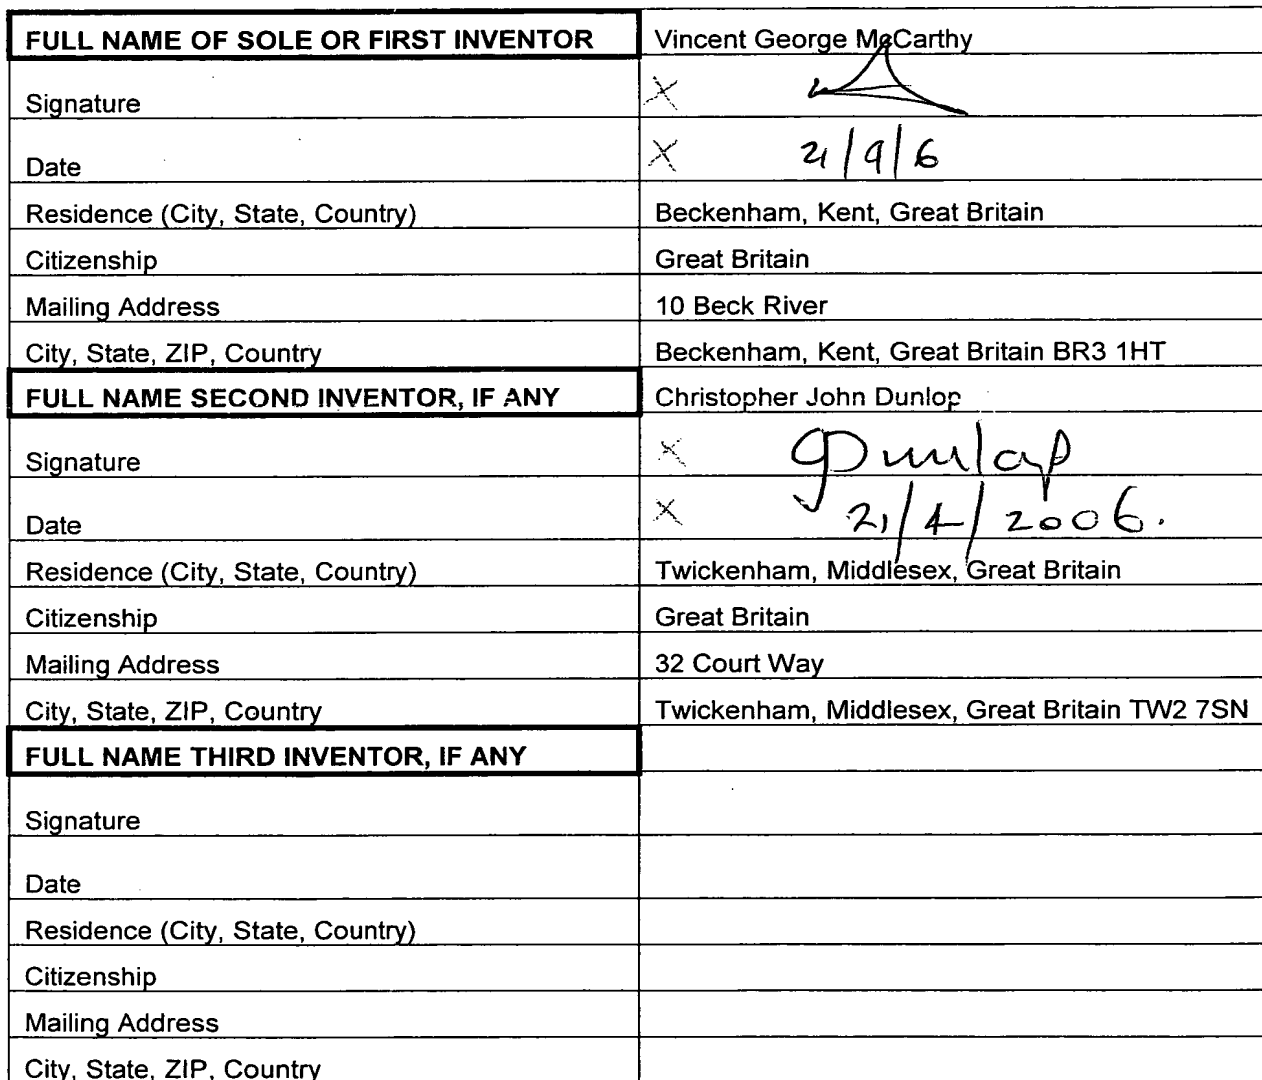 FULL NAME OF SOLE OR FIRST INVENTOR Vincent George McCarthy
Signature X
Date X 21/9/6
Residence (City, State, Country) Beckenham, Kent, Great Britain
Citizenship Great Britain
Mailing Address 10 Beck River
City, State, ZIP, Country Beckenham, Kent, Great Britain BR3 1HT
FULL NAME SECOND INVENTOR, IF ANY Christopher John Dunlop
Signature X CJDunlop
Date X 21/4/2006.
Residence (City, State, Country) Twickenham, Middlesex, Great Britain
Citizenship Great Britain
Mailing Address 32 Court Way
City, State, ZIP, Country Twickenham, Middlesex, Great Britain TW2 7SN
FULL NAME THIRD INVENTOR, IF ANY
Signature
Date
Residence (City, State, Country)
Citizenship
Mailing Address
City, State, ZIP, Country